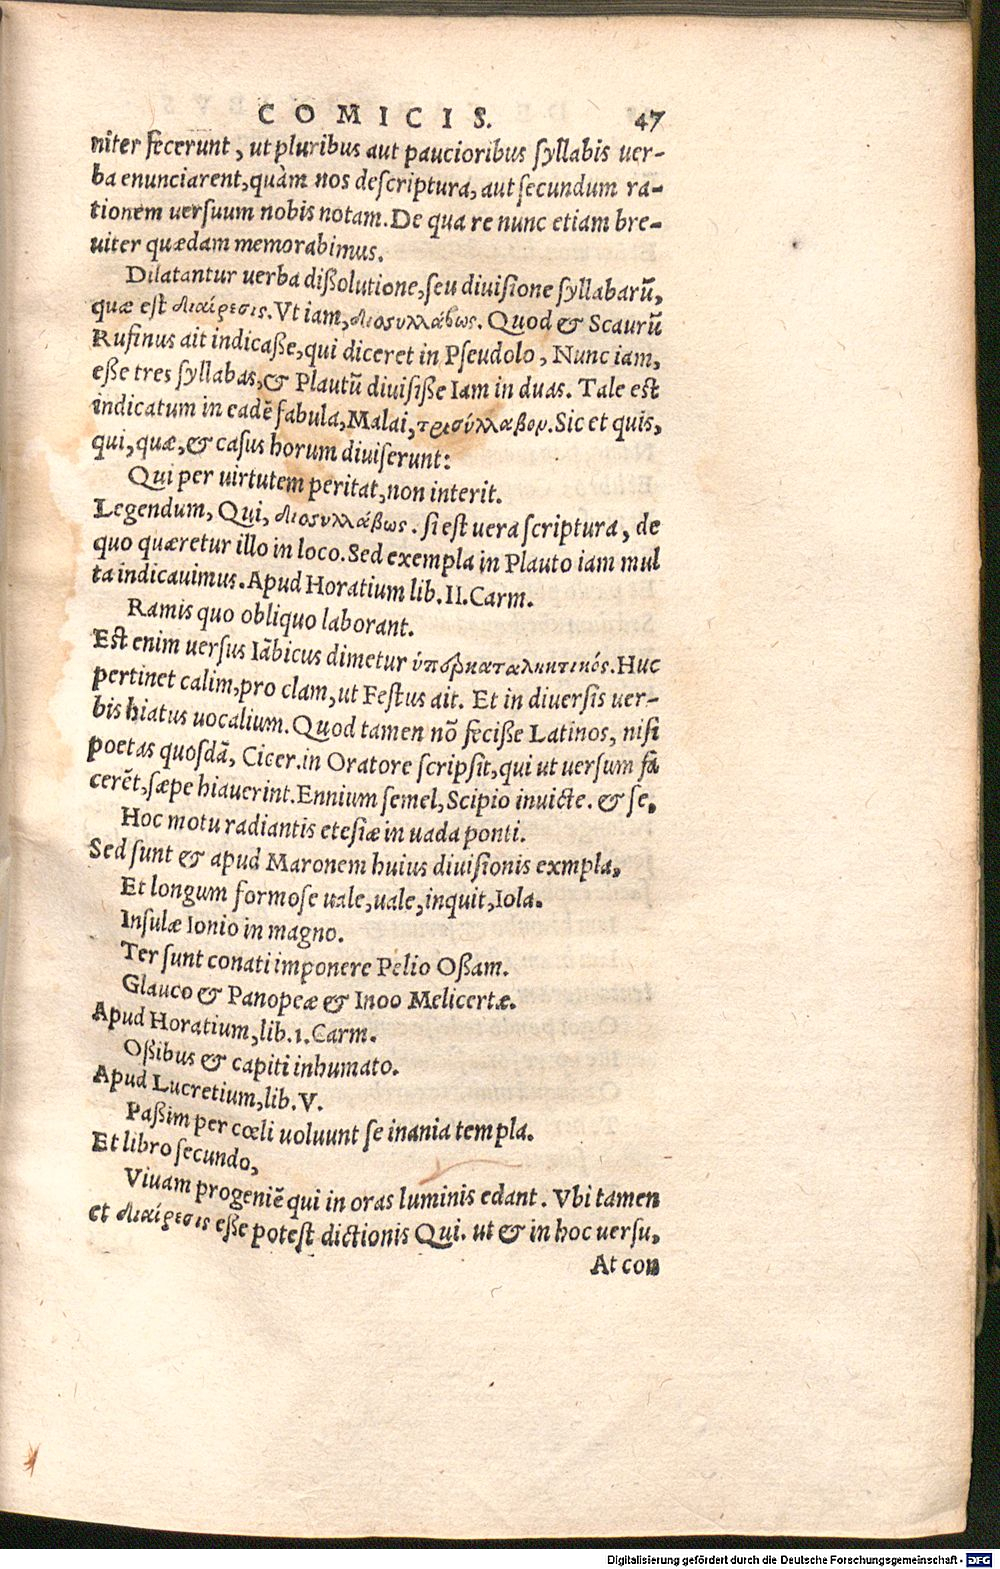 COMICIS. 47
niter fecerunt, ut pluribus aut paucioribus syllabis uer-
ba enunciarent, quàm nos descriptura, aut secundum ra-
tionem uersuum nobis notam. De qua re nunc etiam bre-
uiter quædam memorabimus.
Dilatantur uerba dißolutione, seu diuisione syllabarũ,
quæ est διαίρεσις. Vt iam, διοσυλλάβως. Quod & Scaurũ
Rufinus ait indicaße, qui diceret in Pseudolo, Nunc iam,
eße tres syllabas, & Plautũ diuisiße Iam in duas. Tale est
indicatum in eadẽ fabula, Malai, τρισύλλαβον. Sic et quis,
qui, quæ, & casus horum diuiserunt:
Qui per uirtutem peritat, non interit.
Legendum, Qui, διοσυλλάβως. si est uera scriptura, de
quo quæretur illo in loco. Sed exempla in Plauto iam mul
ta indicauimus. Apud Horatium lib. II. Carm.
Ramis quo obliquo laborant.
Est enim uersus Iãbicus dimetur ὑπερκαταληκτικός. Huc
pertinet calim, pro clam, ut Festus ait. Et in diuersis uer-
bis hiatus uocalium. Quod tamen nõ feciße Latinos, nisi
poetas quosdã, Cicer. in Oratore scripsit, qui ut uersum fa
cerẽt, sæpe hiauerint. Ennium semel, Scipio inuicte. & se,
Hoc motu radiantis etesiæ in uada ponti.
Sed sunt & apud Maronem huius diuisionis exmpla,
Et longum formose uale, uale, inquit, Iola.
Insulæ Ionio in magno.
Ter sunt conati imponere Pelio Oßam.
Glauco & Panopeæ & Inoo Melicertæ.
Apud Horatium, lib. 1. Carm.
Oßibus & capiti inhumato.
Apud Lucretium, lib. V.
Paßim per cœli uoluunt se inania templa.
Et libro secundo,
Viuam progeniẽ qui in oras luminis edant. Vbi tamen
et διαίρεσις eße potest dictionis Qui. ut & in hoc uersu,
At con
Digitalisierung gefördert durch die Deutsche Forschungsgemeinschaft - DFG